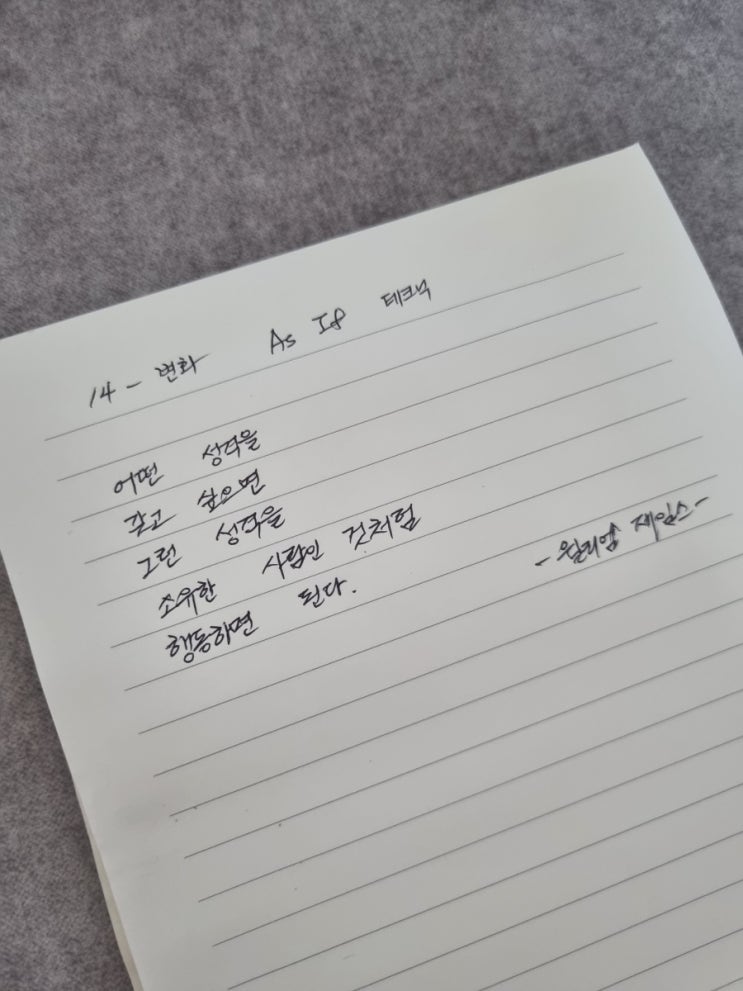 14 - 변화 As If 테크닉
어떤 성격을
갖고 싶으면
그런 성격을
소유한 사람인 것처럼
행동하면 된다.
- 윌리엄 제임스 -